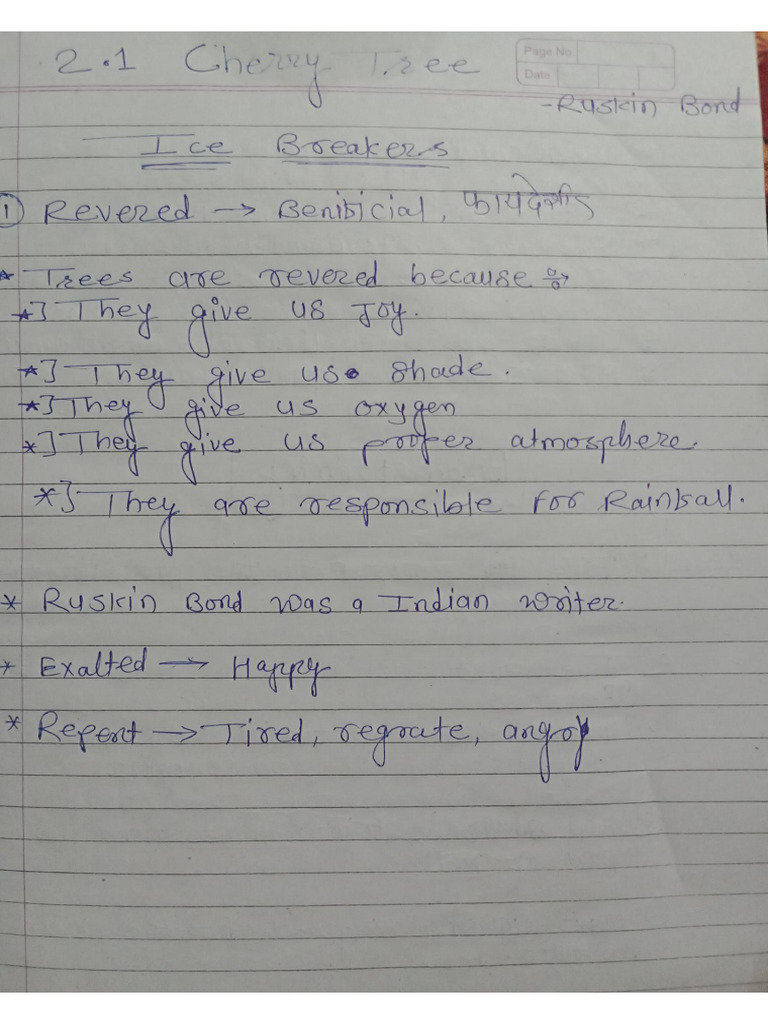 2.1 Cherry Tree
Page No.
Date
-Ruskin Bond
Ice Breakers
1 Revered → Benificial, फायदेशीर
* Trees are revered because :->
*] They give us Joy.
*] They give us shade.
*] They give us oxygen
*] They give us proper atmosphere.
*] They are responsible for Rainfall.
* Ruskin Bond was a Indian writer.
* Exalted → Happy
* Repent → Tired, regrate, angry